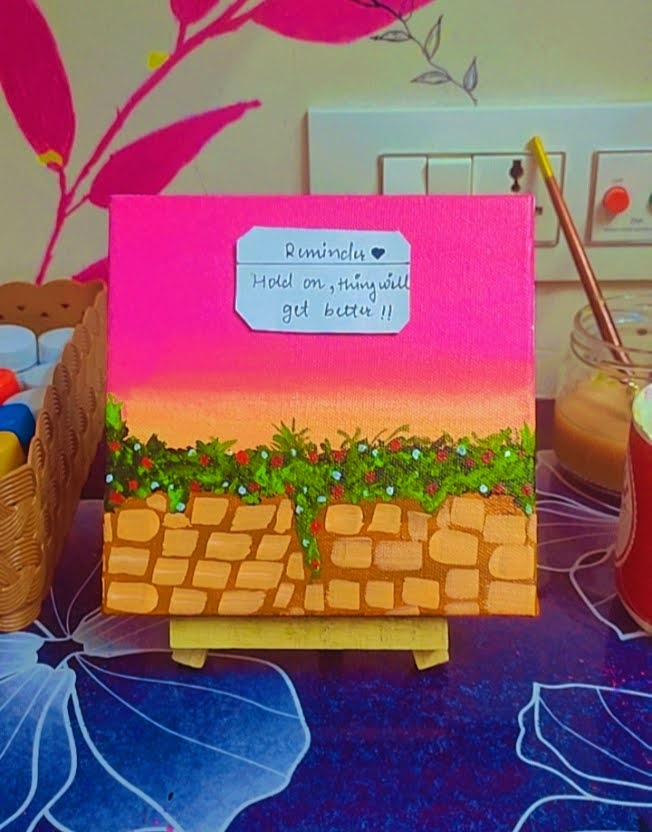 Reminder ♥
Hold on, thing will
get better !!